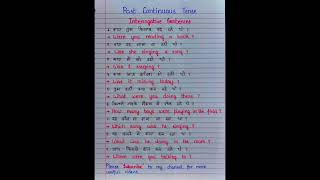 Past Continuous Tense
Interrogative Sentences
1. क्या तुम किताब पढ़ रहे थे ?
→ Were you reading a book ?
2. क्या वह गाना गा रही थी ?
→ Was she singing a song ?
3. क्या मैं सो रहा था ?
→ Was I sleeping ?
4. क्या आज बारिश हो रही थी ?
→ Was it raining today ?
5. तुम वहाँ क्या कर रहे थे ?
→ What were you doing there ?
6. कितने लड़के मैदान में खेल रहे थे ?
→ How many boys were playing in the field ?
7. वह कौन सा गाना गा रहा था ?
→ Which song was he singing ?
→ What was he doing in the room ?
→ Whom were you talking to ?
Please Subscribe to my channel for more
useful videos.